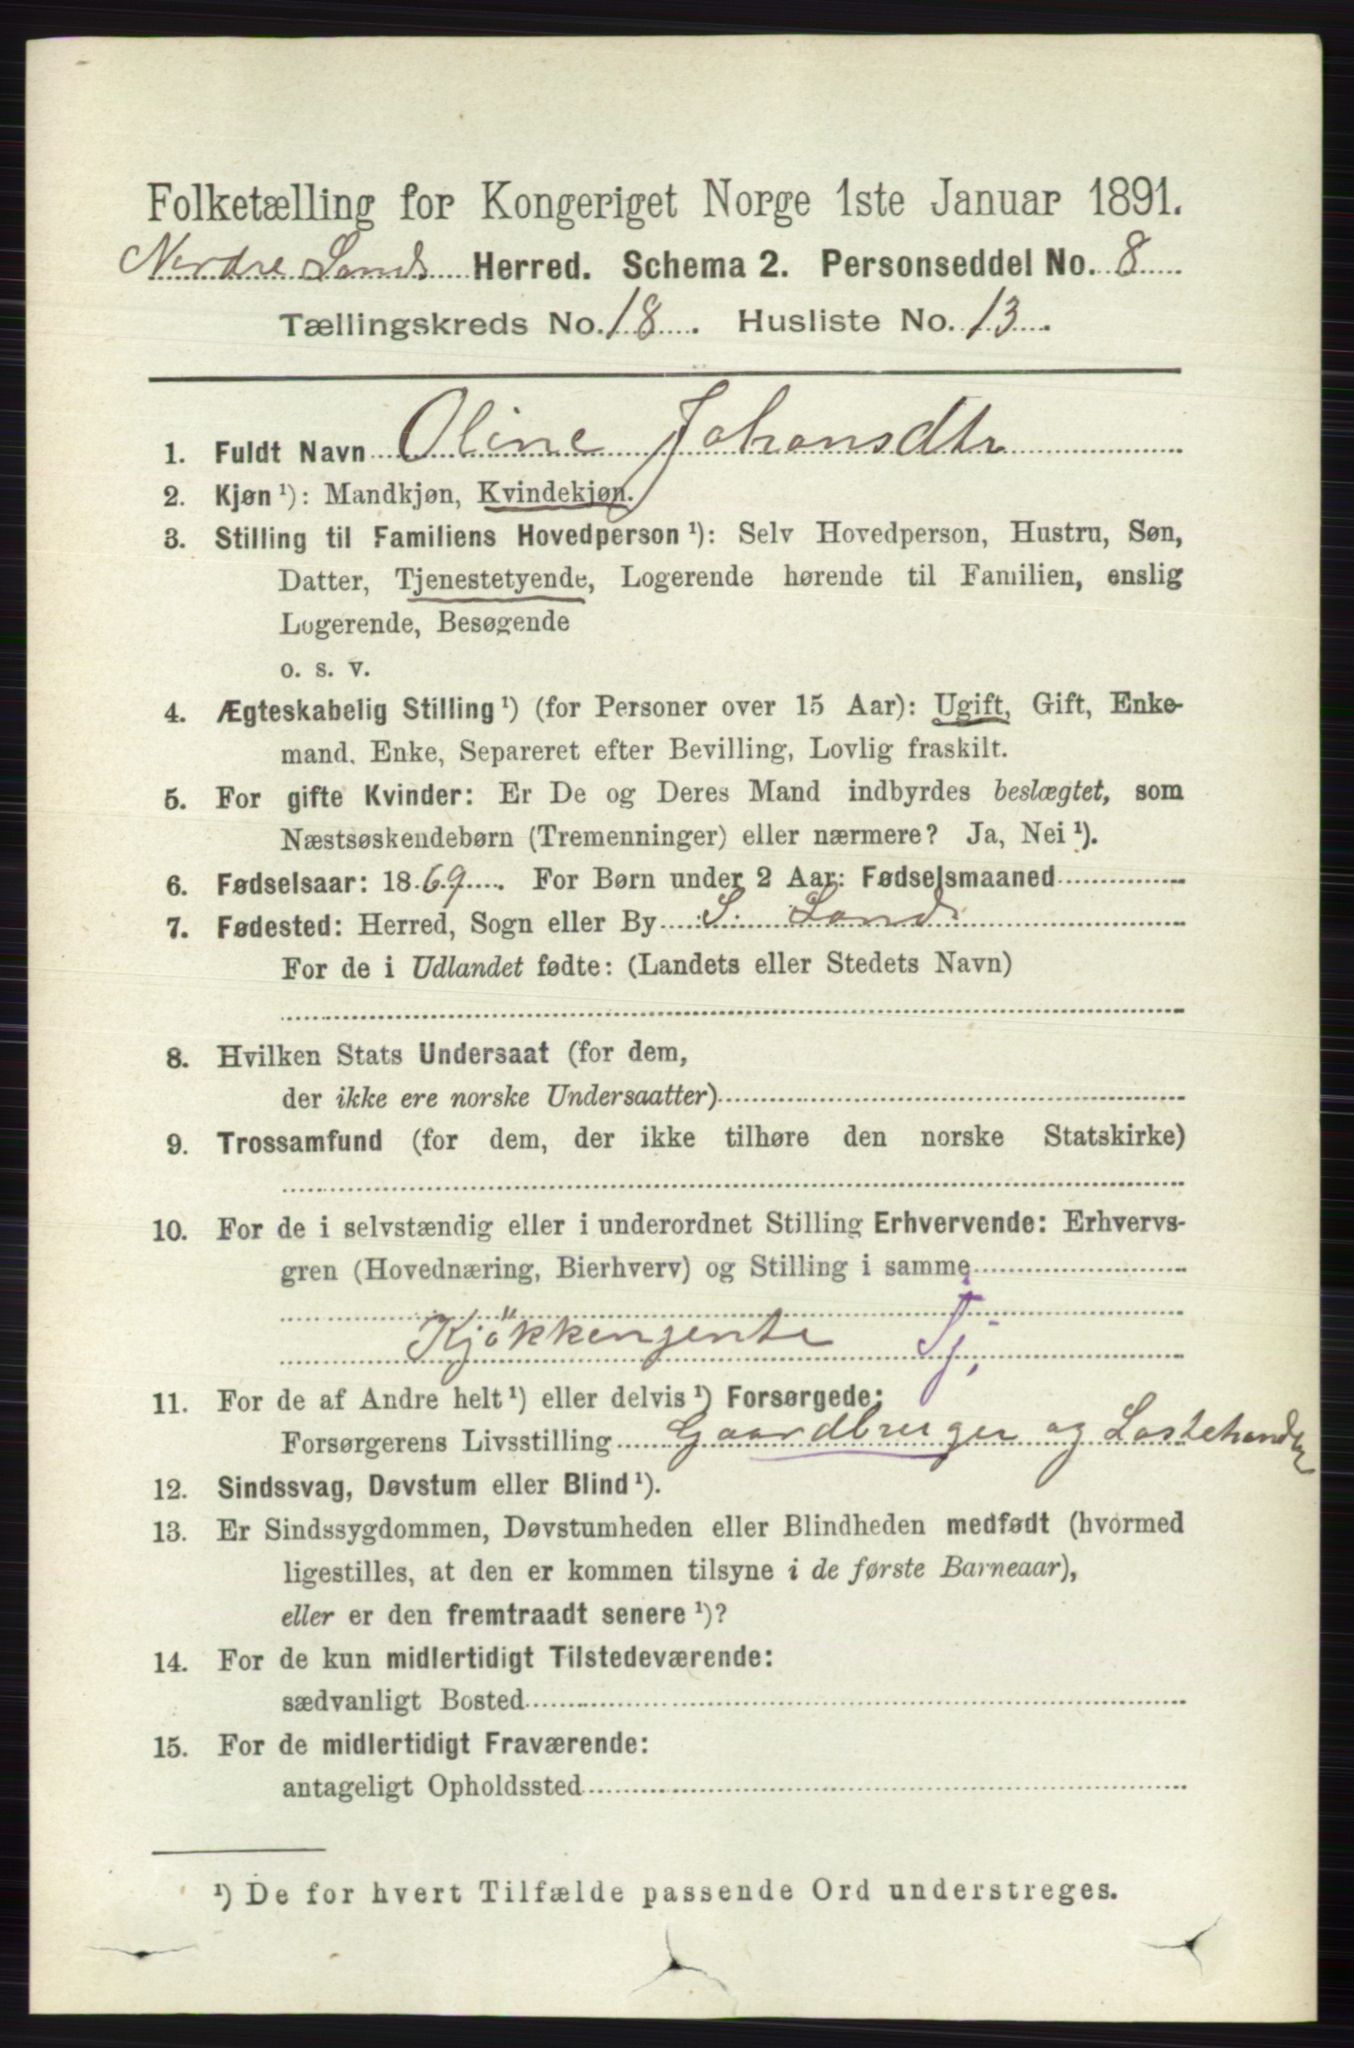 Folketælling for Kongeriget Norge 1ste Januar 1891.
Nordre Land Herred. Schema 2. Personseddel No. 8
Tællingskreds No. 18. Husliste No. 13.
1. Fuldt Navn Oline Johansdtr
2. Kjøn ¹): Mandkjøn, Kvindekjøn.
3. Stilling til Familiens Hovedperson ¹): Selv Hovedperson, Hustru, Søn,
Datter, Tjenestetyende, Logerende hørende til Familien, enslig
Logerende, Besøgende
o. s. v.
4. Ægteskabelig Stilling ¹) (for Personer over 15 Aar): Ugift, Gift, Enke-
mand, Enke, Separeret efter Bevilling, Lovlig fraskilt.
5. For gifte Kvinder: Er De og Deres Mand indbyrdes beslægtet, som
Næstsøskendebørn (Tremenninger) eller nærmere? Ja, Nei ¹).
6. Fødselsaar: 1869. For Børn under 2 Aar: Fødselsmaaned
7. Fødested: Herred, Sogn eller By S. Land
For de i Udlandet fødte: (Landets eller Stedets Navn)
8. Hvilken Stats Undersaat (for dem,
der ikke ere norske Undersaatter)
9. Trossamfund (for dem, der ikke tilhøre den norske Statskirke)
10. For de i selvstændig eller i underordnet Stilling Erhvervende: Erhvervs-
gren (Hovednæring, Bierhverv) og Stilling i samme
Kjökkenjente Tj.
11. For de af Andre helt ¹) eller delvis ¹) Forsørgede:
Forsørgerens Livsstilling Gaardbruger og
12. Sindssvag, Døvstum eller Blind ¹).
13. Er Sindssygdommen, Døvstumheden eller Blindheden medfødt (hvormed
ligestilles, at den er kommen tilsyne i de første Barneaar),
eller er den fremtraadt senere ¹)?
14. For de kun midlertidigt Tilstedeværende:
sædvanligt Bosted
15. For de midlertidigt Fraværende:
antageligt Opholdssted
¹) De for hvert Tilfælde passende Ord understreges.